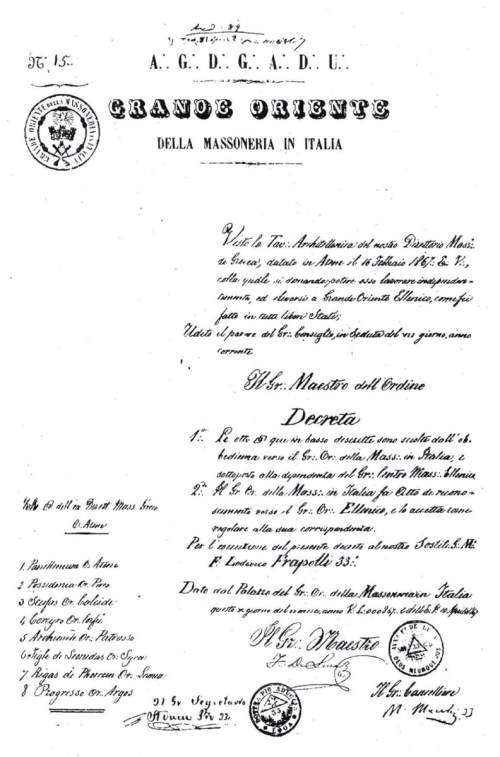 Nº. 15.
A∴ G∴ D∴ G∴ A∴ D∴ U∴
GRANDE ORIENTE
DELLA MASSONERIA IN ITALIA
GRANDE ORIENTE DELLA MASSONERIA IN ITALIA
Visto la Tav∴ Architettonica del nostro Direttorio Mass∴
di Grecia, datata in Atene il 16 Febbraio 1867∴ E. V.,
colla quale si domanda, potere esso lavorare independen-
temente, ed elevarsi a Grande Oriente Ellenico, come fu
fatto in tutti liberi Stati;
Udito il parere del Gr∴ Consiglio, in Seduta del giorno, anno
corrente
Il Gr∴ Maestro dell'Ordine
Decreta
1º∴ Le otto qui in basso descritte sono sciolte dall'ob-
bedienza verso il Gr∴ Or∴ della Mass∴ in Italia, e
sottoposte alla dipendenza del Gr∴ Centro Mass∴ Ellenico
2º∴ Il Gr∴ Or∴ della Mass∴ in Italia fa Atto di ricono-
scimento verso il Gr∴ Or∴ Ellenico, e lo accetta come
regolare alla sua corrispondenza.
Per l'esecuzione del presente decreto al nostro Sostit∴ G∴ M∴
F∴ Lodovico Frapolli 33∴
Dato dal Palazzo del Gr∴ Or∴ della Massoneria in Italia
giorno del mese, anno V∴ L∴
dell' Mass∴
Or∴ Atene
1 Panellinium Or. Atene
2 Possidonia Or. Pireo
3 Or. Calcide
4 Or. Corfù
5 Archimede Or. Patrasso
6 Figli di Or. Syra
7 Rigas di
8 Progresso Or. Argos
Il Gr∴ Maestro
Il Gr Segretario
33
Il Gr∴ Cancelliere
33
DEUS MEUMQUE JUS